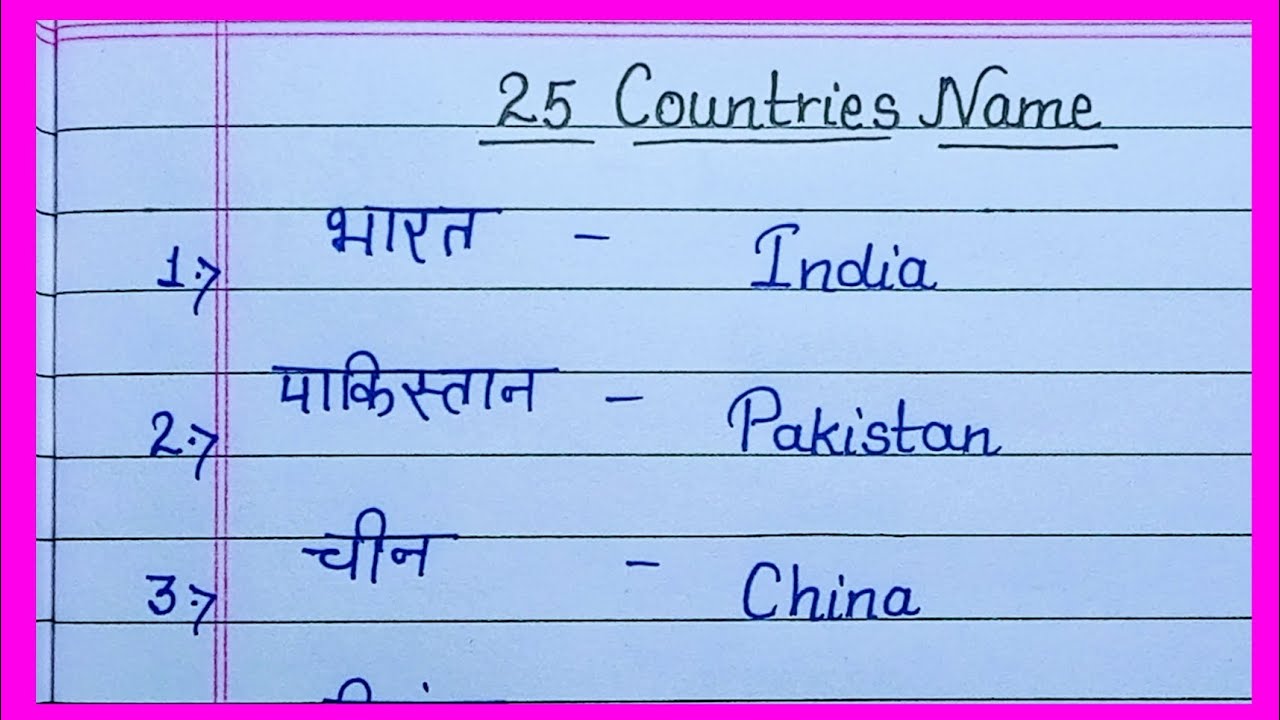 25 Countries Name
1.→ भारत - India
2.→ पाकिस्तान - Pakistan
3.→ चीन - China